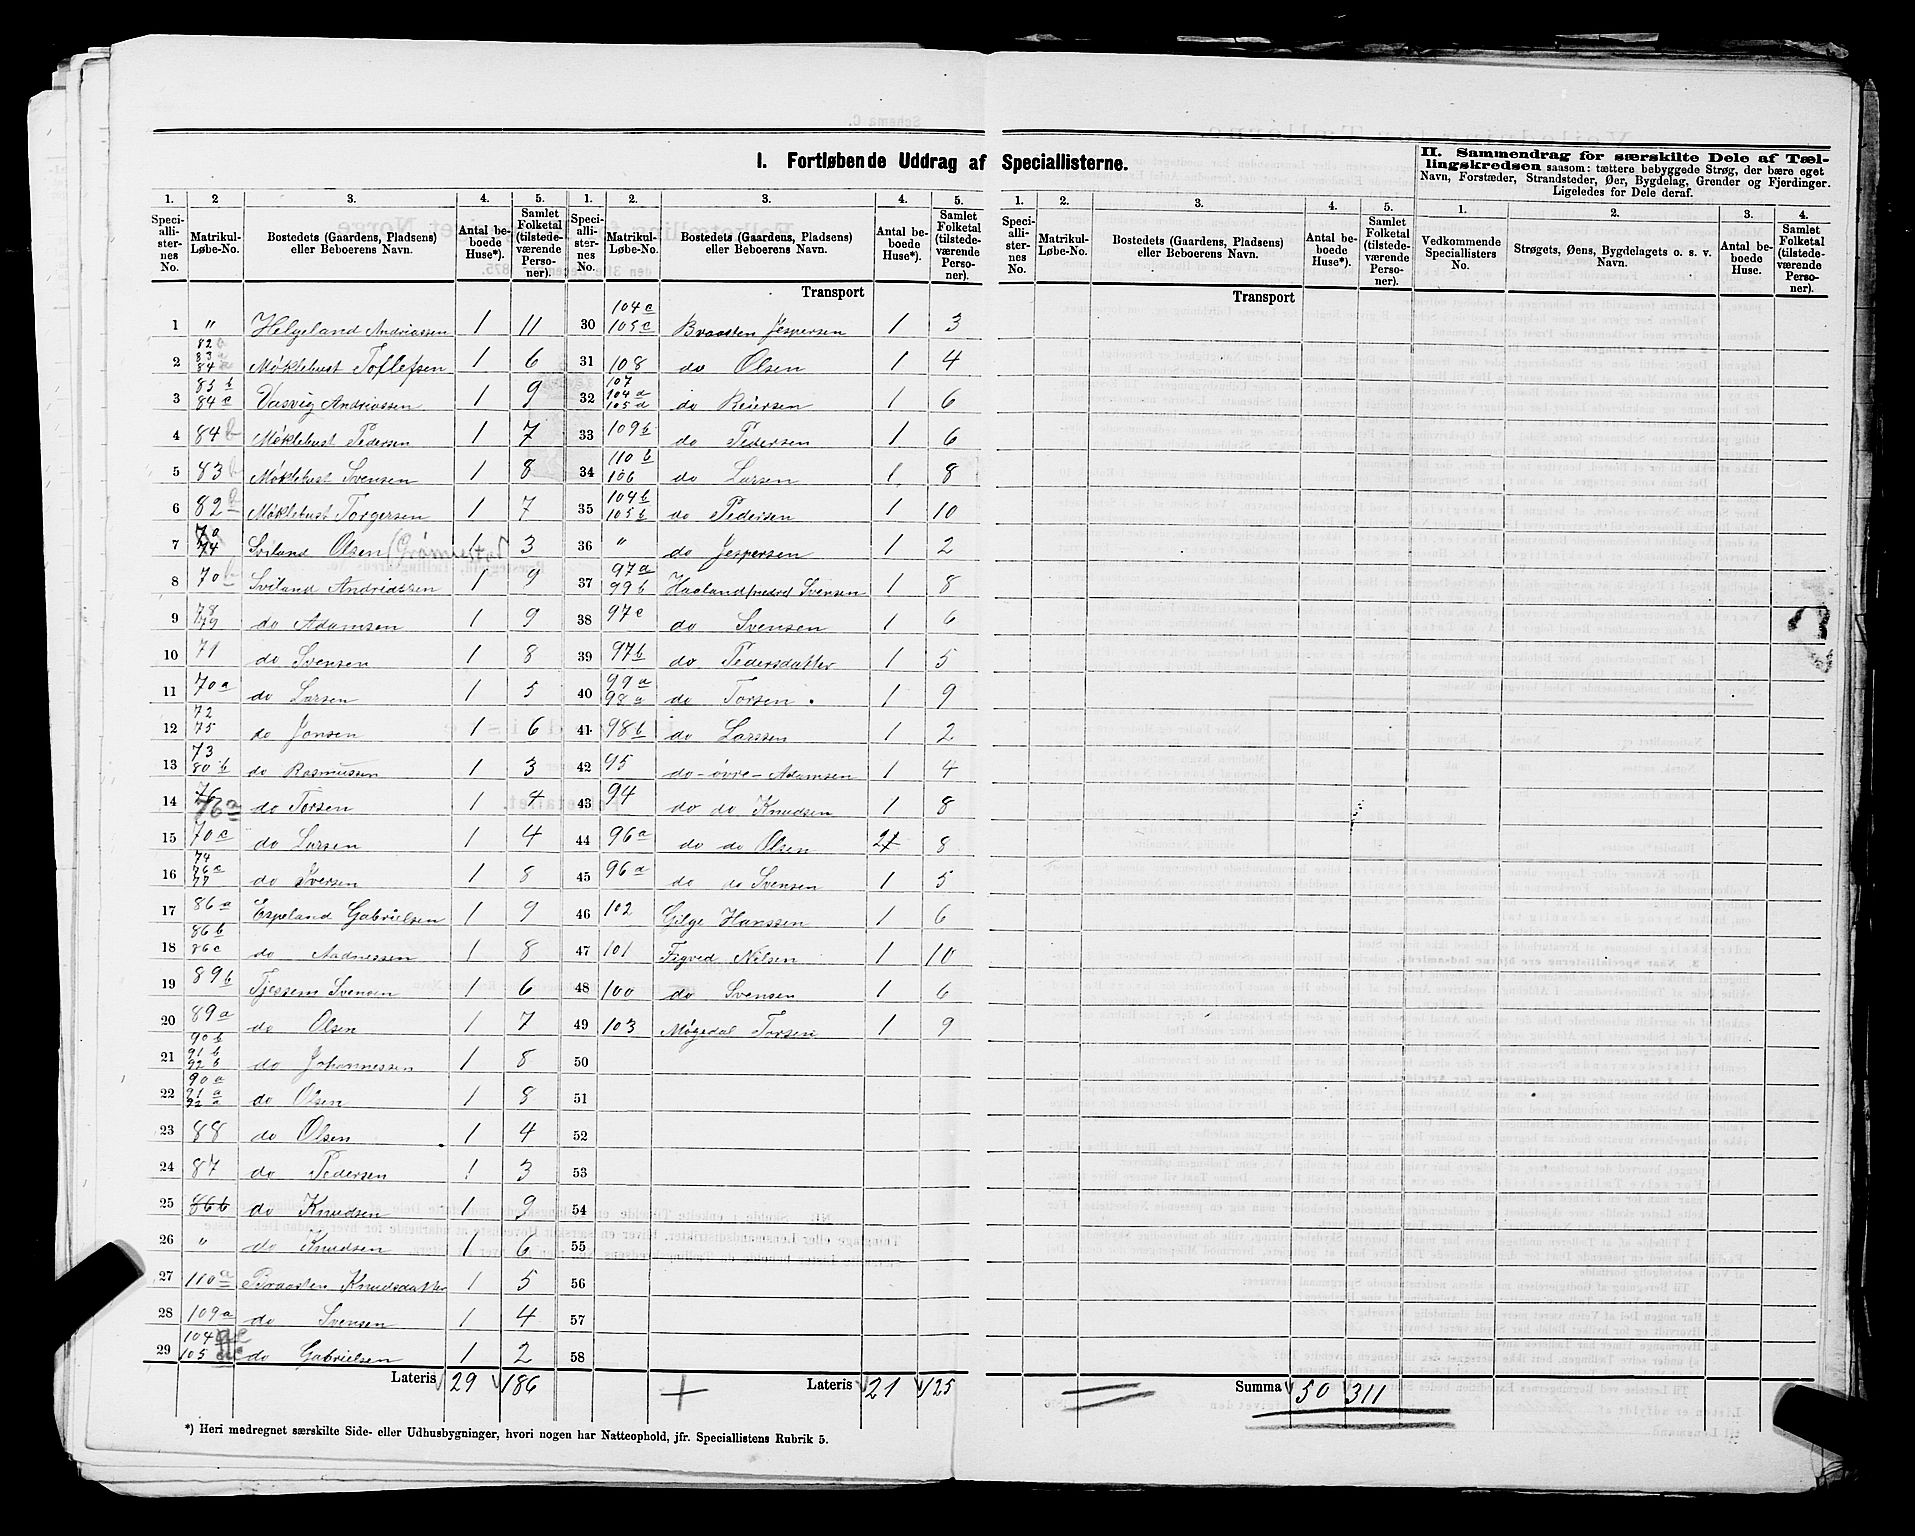 I. Fortløbende Uddrag af Speciallisterne.
II. Sammendrag for særskilte Dele af Tæl-
lingskredsen saasom: tættere bebyggede Strøg, der bære eget
Navn, Forstæder, Strandsteder, Øer, Bygdelag, Grender og Fjerdinger.
Ligeledes for Dele deraf.
1. 2 3. 4. 5. 1. 2. 3. 4. 5. 1. 2. 3. 4. 5. 1. 2. 3. 4.
Speci-allister-nes No. Matrikul-Løbe-No. Bostedets (Gaardens, Pladsens) eller Beboerens Navn. Antal be-boede Huse*). Samlet Folketal (tilstede-værende Perso-ner).
Speci-allister-nes No. Matrikul-Løbe-No. Bostedets (Gaardens, Pladsens) eller Beboerens Navn. Antal be-boede Huse*). Samlet Folketal (tilstede-værende Perso-ner).
Speci-allister-nes No. Matrikul-Løbe-No. Bostedets (Gaardens, Pladsens) eller Beboerens Navn. Antal be-boede Huse*). Samlet Folketal (tilstede-værende Perso-ner).
Vedkommende Speciallisters No. Strøgets, Øens, Bygdelagets o. s. v. Navn. Antal be-boede Huse. Samlet Folketal (tilstede-værende Perso-ner).
Transport
Transport
1 " Helgeland Andriassen 1 11
2 82 83 84 Møklebust Toflefsen 1 6
3 85 b 84 c Vasvig Andriassen 1 9
4 84 b Møklebust Pedersen 1 7
5 83 b Møklebust Svensen 1 8
6 82 Møklebust Torgersen 1 7
7 Sviland Olsen 1 3
8 70 b Sviland Andriassen 1 9
9 78 79 do Adamsen 1 9
10 71 do Svensen 1 8
11 70 a do Larsen 1 5
12 72 75 do Jonsen 1 6
13 73 80 b do Rasmussen 1 3
14 76 a do Torsen 1 4
15 70 c do Larsen 1 4
16 74 76 c 77 do Iversen 1 8
17 86 a Espeland Gabrielsen 1 9
18 86 b 86 c do Aadnessen 1 8
19 89 b Tjessem Svensen 1 6
20 89 a do Olsen 1 7
21 90 b 91 b 92 b do Johannessen 1 8
22 90 a 91 a 92 a do Olsen 1 8
23 88 do Olsen 1 4
24 87 do Pedersen 1 3
25 86 b do Knudsen 1 9
26 " do Knudsen 1 6
27 110 a Braasten Knudsdatter 1 5
28 109 a do Svensen 1 4
29 104 105 do Gabrielsen 1 2
Lateris 29 186
30 104 c 105 c Braasten Jespersen 1 3
31 108 do Olsen 1 4
32 107 104 a 105 d do Reiersen 1 6
33 109 b do Pedersen 1 6
34 110 b 106 do Larsen 1 8
35 104 b 105 b do Pedersen 1 10
36 " do Jespersen 1 2
37 97 a 99 b Haaland (nedre) Svensen 1 8
38 97 c do Svensen 1 6
39 97 b do Pedersdatter 1 5
40 99 a 98 a do Torsen 1 9
41 98 b do Larssen 1 2
42 95 do - øvre - Adamsen 1 4
43 94 do do Knudsen 1 8
44 96 a do do Olsen 2 8
45 96 a do do Svensen 1 5
46 102 Gilge Hanssen 1 6
47 101 Figved Nilsen 1 10
48 100 do Svensen 1 6
49 103 Møgedal Torsen 1 9
50
51
52
53
54
55
56
57
58
Lateris 21 125
Summa 50 311
*) Heri medregnet særskilte Side- eller Udhusbygninger, hvori nogen har Natteophold, jfr. Speciallistens Rubrik 5.